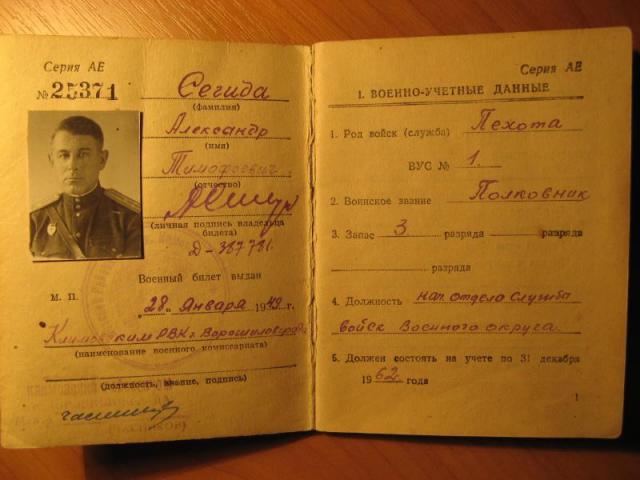 Серия АЕ
№ 25371
Сегида
(фамилия)
Александр
(имя)
Тимофеевич
(отчество)
(личная подпись владельца
билета)
Д-387781.
Военный билет выдан
М. П.
28 января 1949 г.
РВК г. Ворошиловграда
(наименование военного комиссариата)
(должность, звание, подпись)
Серия АЕ
I. ВОЕННО-УЧЕТНЫЕ ДАННЫЕ
1. Род войск (служба) Пехота
ВУС № 1.
2. Воинское звание Полковник
3. Запас 3 разряда разряда
разряда
4. Должность нач. отдела Служба
войск Военного округа.
5. Должен состоять на учете по 31 декабря
1962 года
1